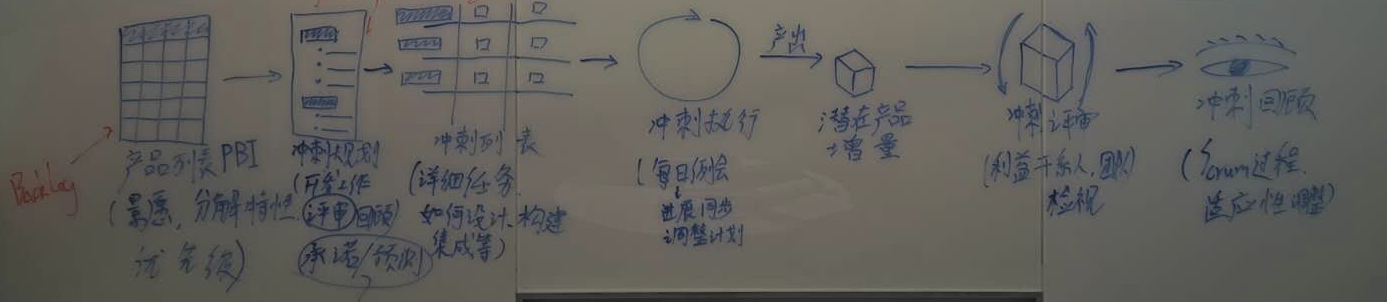 Backlog
产品列表 PBI
(愿景, 分解特性
优先级)
冲刺规划
(开发工作
评审 回顾)
承诺/预测
冲刺列表
(详细任务,
如何设计、构建
集成等)
冲刺执行
(每日例会
进展同步
调整计划
产出
潜在产品
增量
冲刺评审
(利益干系人, 团队)
检视
冲刺回顾
(Scrum过程,
适应性调整)